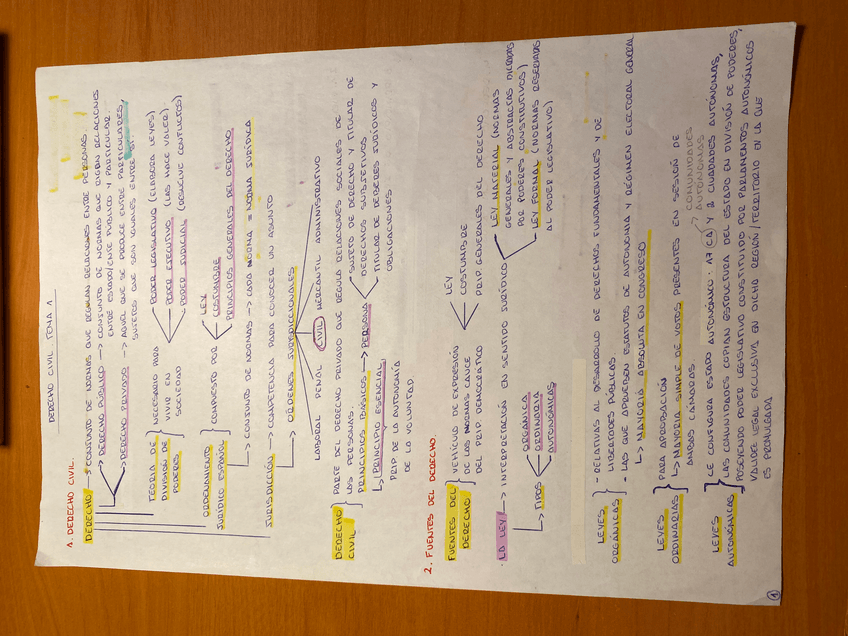 DERECHO CIVIL TEMA 1
1. DERECHO CIVIL.
DERECHO → CONJUNTO DE NORMAS QUE REGULAN RELACIONES ENTRE PERSONAS
→ DERECHO PÚBLICO → CONJUNTO DE NORMAS QUE RIGEN RELACIONES
ENTRE ESTADO/ENTE PÚBLICO Y PARTICULAR.
→ DERECHO PRIVADO → AQUEL QUE SE PRODUCE ENTRE PARTICULARES,
SUJETOS QUE SON IGUALES ENTRE SÍ
TEORIA DE
DIVISION DE
PODERES
NECESARIO PARA
VIVIR EN
SOCIEDAD
PODER LEGISLATIVO (ELABORA LEYES)
PODER EJECUTIVO (LAS HACE VALER)
PODER JUDICIAL (RESUELVE CONFLICTOS)
ORDENAMIENTO
JURÍDICO ESPAÑOL
COMPUESTO POR
LEY
COSTUMBRE
PRINCIPIOS GENERALES DEL DERECHO
→ CONJUNTO DE NORMAS → CADA NORMA = NORMA JURÍDICA
JURISDICCIÓN → COMPETENCIA PARA CONOCER UN ASUNTO
→ ÓRDENES JURISDICCIONALES
LABORAL PENAL CIVIL MERCANTIL ADMINISTRATIVO
DERECHO
CIVIL
PARTE DE DERECHO PRIVADO QUE REGULA RELACIONES SOCIALES DE
LAS PERSONAS.
PRINCIPIOS BÁSICOS → PERSONA
SUJETO DE DERECHO Y TITULAR DE
DERECHOS SUBJETIVOS
TITULAR DE DEBERES JURÍDICOS Y
OBLIGACIONES
→ PRINCIPIO ESENCIAL:
PRIP DE LA AUTONOMÍA
DE LA VOLUNTAD
2. FUENTES DEL DERECHO.
FUENTES DEL
DERECHO
VEHÍCULO DE EXPRESIÓN
DE LAS NORMAS CAUCE
DEL PRIP. DEMOCRÁTICO
LEY
COSTUMBRE
PRIP. GENERALES DEL DERECHO
· LA LEY → INTERPRETACIÓN EN SENTIDO JURÍDICO
LEY MATERIAL (NORMAS
GENERALES Y ABSTRACTAS DICTADAS
POR PODERES CONSTITUTIVOS)
LEY FORMAL (NORMAS RESERVADAS
AL PODER LEGISLATIVO)
→ TIPOS
ORGÁNICA
ORDINARIA
AUTONÓMICAS
LEYES
ORGÁNICAS
- RELATIVAS AL DESARROLLO DE DERECHOS FUNDAMENTALES Y DE
LIBERTADES PÚBLICAS
- LAS QUE APRUEBEN ESTATUTOS DE AUTONOMÍA Y RÉGIMEN ELECTORAL GENERAL
→ MAYORIA ABSOLUTA EN CONGRESO
LEYES
ORDINARIAS
PARA APROBACIÓN
→ MAYORIA SIMPLE DE VOTOS PRESENTES EN SESIÓN DE
AMBAS CÁMARAS
COMUNIDADES
AUTÓNOMAS
LEYES
AUTONÓMICAS
SE CONFIGURA ESTADO AUTONÓMICO. 17 CA Y 2 CIUDADES AUTÓNOMAS,
LAS COMUNIDADES COPIAN ESTRUCTURA DEL ESTADO EN DIVISIÓN DE PODERES,
POSEYENDO PODER LEGISLATIVO CONSTITUIDO POR PARLAMENTOS AUTONÓMICOS
VALIDEZ LEGAL EXCLUSIVA EN DICHA REGIÓN/TERRITORIO EN LA QUE
ES PROMULGADA
1